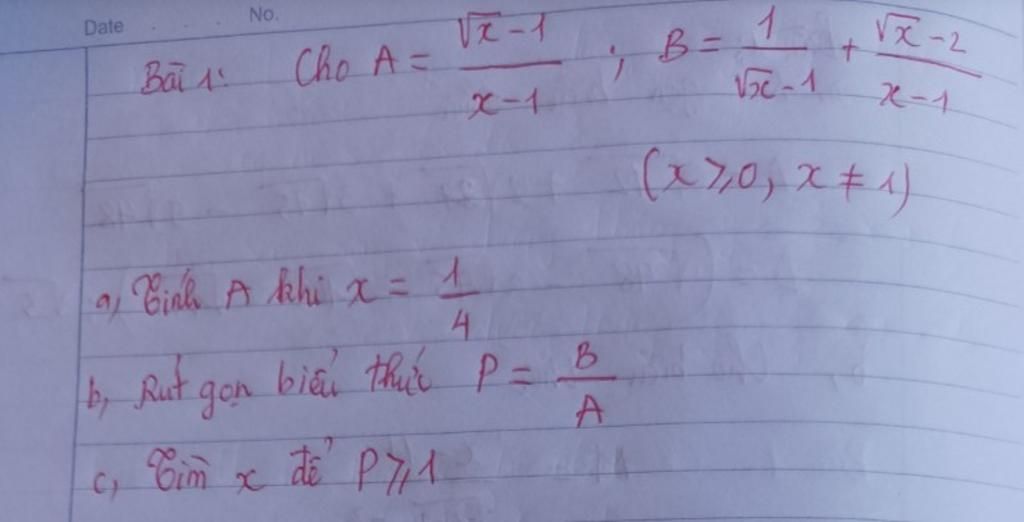 Date . . . No.
Bài 1: Cho A = (√x - 1)/(x - 1) ; B = 1/(√x - 1) + (√x - 2)/(x - 1)
(x ⩾ 0, x ≠ 1)
a, Tính A khi x = 1/4
b, Rút gọn biểu thức P = B/A
c, Tìm x để P ⩾ 1